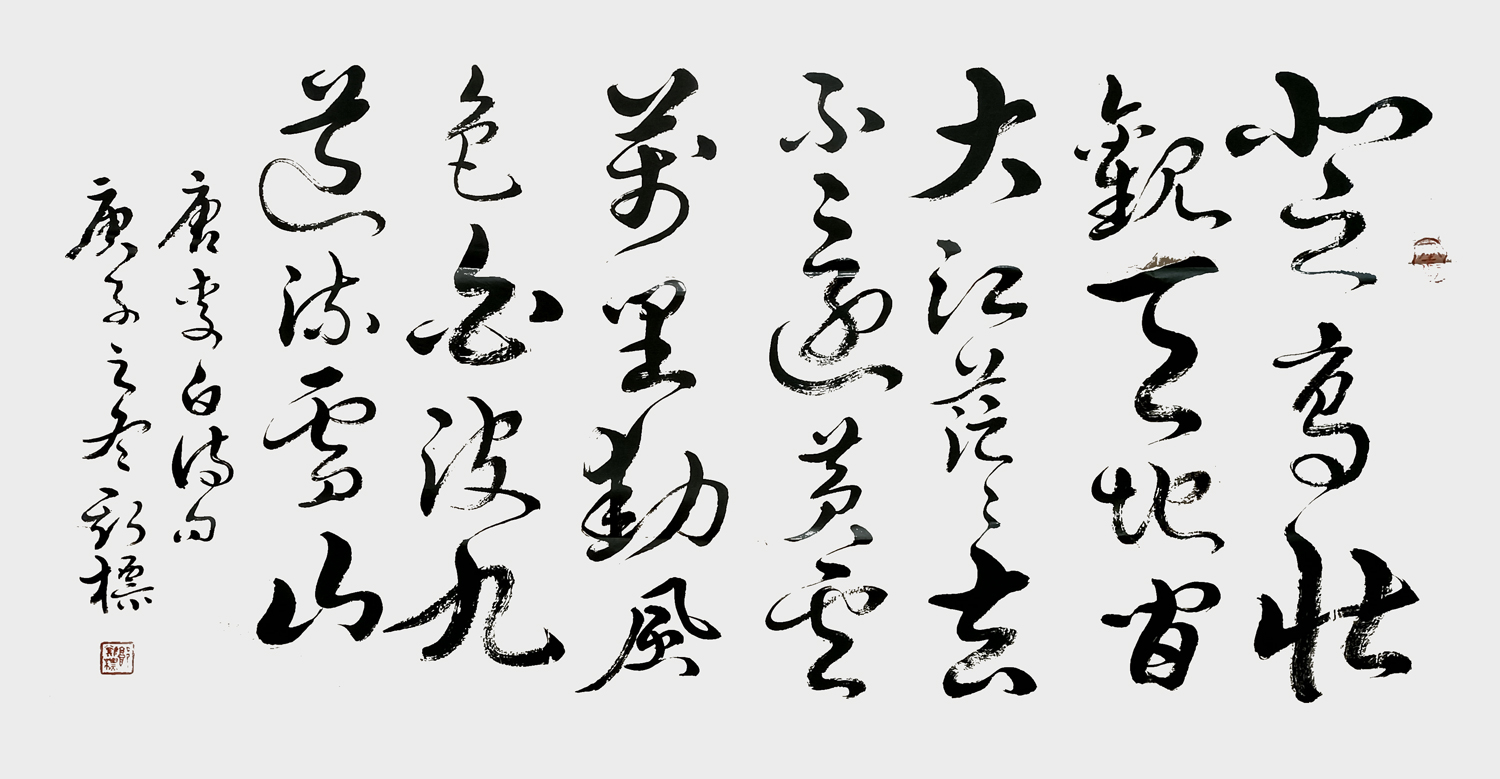 登高壯
觀天地間
大江茫茫去
不還黃雲
萬里動風
色白波九
道流雪山
唐李白詩句
庚子之冬新標